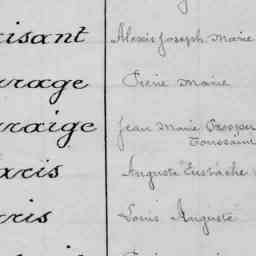 isant Alexis Joseph Marie
rage Pierre Marie
raige Jean Marie Prosper
Toussaint
acis Auguste Eustache
ris Louis Auguste